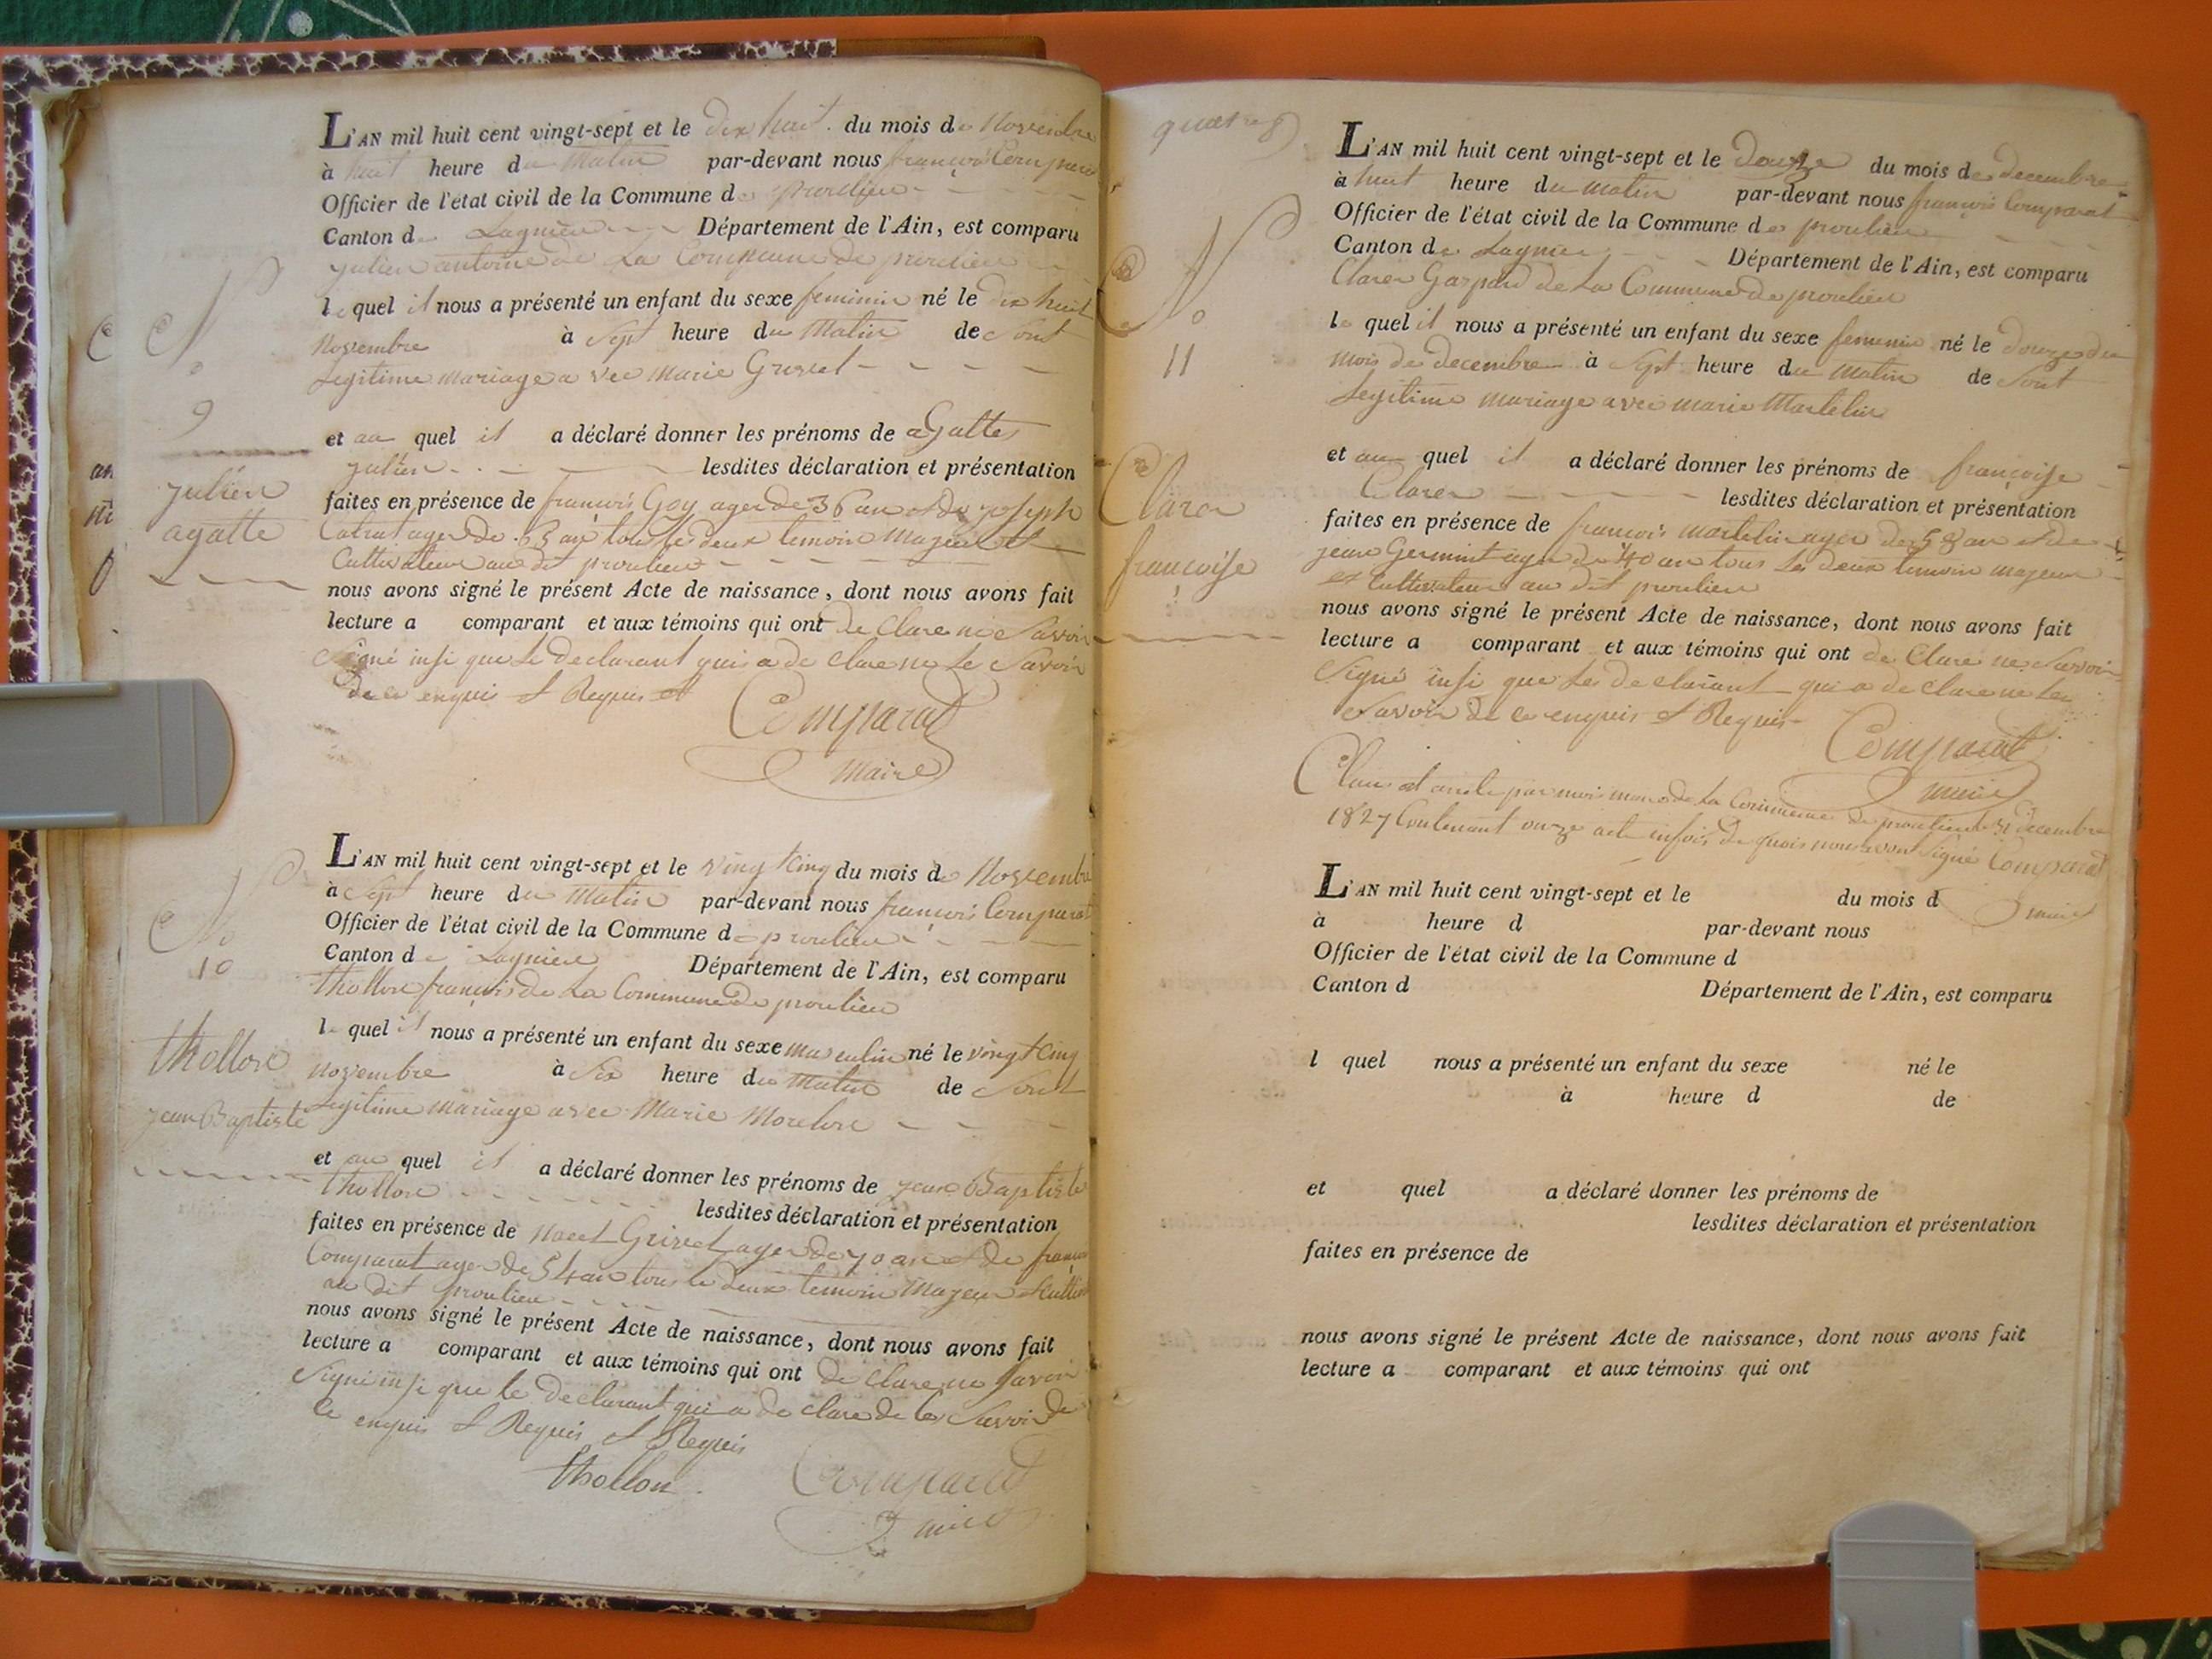 L'AN mil huit cent vingt-sept et le dix huit du mois de Novembre
à huit heure du Matin par-devant nous françois Comparat
Officier de l'état civil de la Commune de proulieu
Canton de Lagnieu Département de l'Ain, est comparu
julien antoine de La Commune de proulieu
le quel il nous a présenté un enfant du sexe feminin né le dix huit
Novembre à Sept heure du Matin de Sont
Legitime mariage a vec Marie Grivet
et au quel il a déclaré donner les prénoms de agatte
julien lesdites déclaration et présentation
faites en présence de françois Goy ager de 36 an et de joseph
ager de 63 an tous les deux temoin Majeur et
Cultivateur au dit proulieu
nous avons signé le présent Acte de naissance, dont nous avons fait
lecture a comparant et aux témoins qui ont de Clare ne Savoir
Signé insi que Le declarant qui a de clare ne Le Savoir
de ce enquis et Requis et
Comparat
Maire
No
9
julien
agatte
L'AN mil huit cent vingt-sept et le vingt Cinq du mois de Novembre
à Sept heure du Matin par-devant nous françois Comparat
Officier de l'état civil de la Commune de proulieu
Canton de Lagnieu Département de l'Ain, est comparu
thollon françois de La Commune de proulieu
le quel il nous a présenté un enfant du sexe masculin né le vingt Cinq
novembre à Six heure du Matin de Sont
Legitime mariage avec Marie
et au quel il a déclaré donner les prénoms de jean Baptiste
thollon lesdites déclaration et présentation
faites en présence de Grivet ager de 70 an et de françois
Comparat ager de 54 an tous le deux temoin Majeur
au dit proulieu
nous avons signé le présent Acte de naissance, dont nous avons fait
lecture a comparant et aux témoins qui ont de Clare ne Savoir
Signé insi que le declarant qui a de clare de le Savoir de
Ce enquis et Requis et Requis
thollon
Comparat
maire
No
10
thollon
jean Baptiste
L'AN mil huit cent vingt-sept et le douze du mois de decembre
à huit heure du matin par-devant nous françois Comparat
Officier de l'état civil de la Commune de proulieu
Canton de Lagnieu Département de l'Ain, est comparu
Claren Gaspard de La Commune de proulieu
le quel il nous a présenté un enfant du sexe feminin né le douze du
mois de decembre à Sept heure du Matin de Sont
Legitime mariage avec marie Martelin
et au quel il a déclaré donner les prénoms de françoise
Claren lesdites déclaration et présentation
faites en présence de françois martelin ager de 58 an et de
jean ager de 40 an tous Les deux temoin majeur
et Cultivateur au dit proulieu
nous avons signé le présent Acte de naissance, dont nous avons fait
lecture a comparant et aux témoins qui ont de Clare ne Savoir
Signé insi que Le declarant qui a de clare ne Le
Savoir de ce enquis et Requis
Comparat
maire
Clau et arrete par moi maire de La Commune de proulieu le 31 decembre
1827 Contenant onze acte enfois de quois nous avon Signé Comparat
maire
No
11
Claren
françoise
L'AN mil huit cent vingt-sept et le du mois d
à heure d par-devant nous
Officier de l'état civil de la Commune d
Canton d Département de l'Ain, est comparu
l quel nous a présenté un enfant du sexe né le
à heure d de
et quel a déclaré donner les prénoms de
lesdites déclaration et présentation
faites en présence de
nous avons signé le présent Acte de naissance, dont nous avons fait
lecture a comparant et aux témoins qui ont